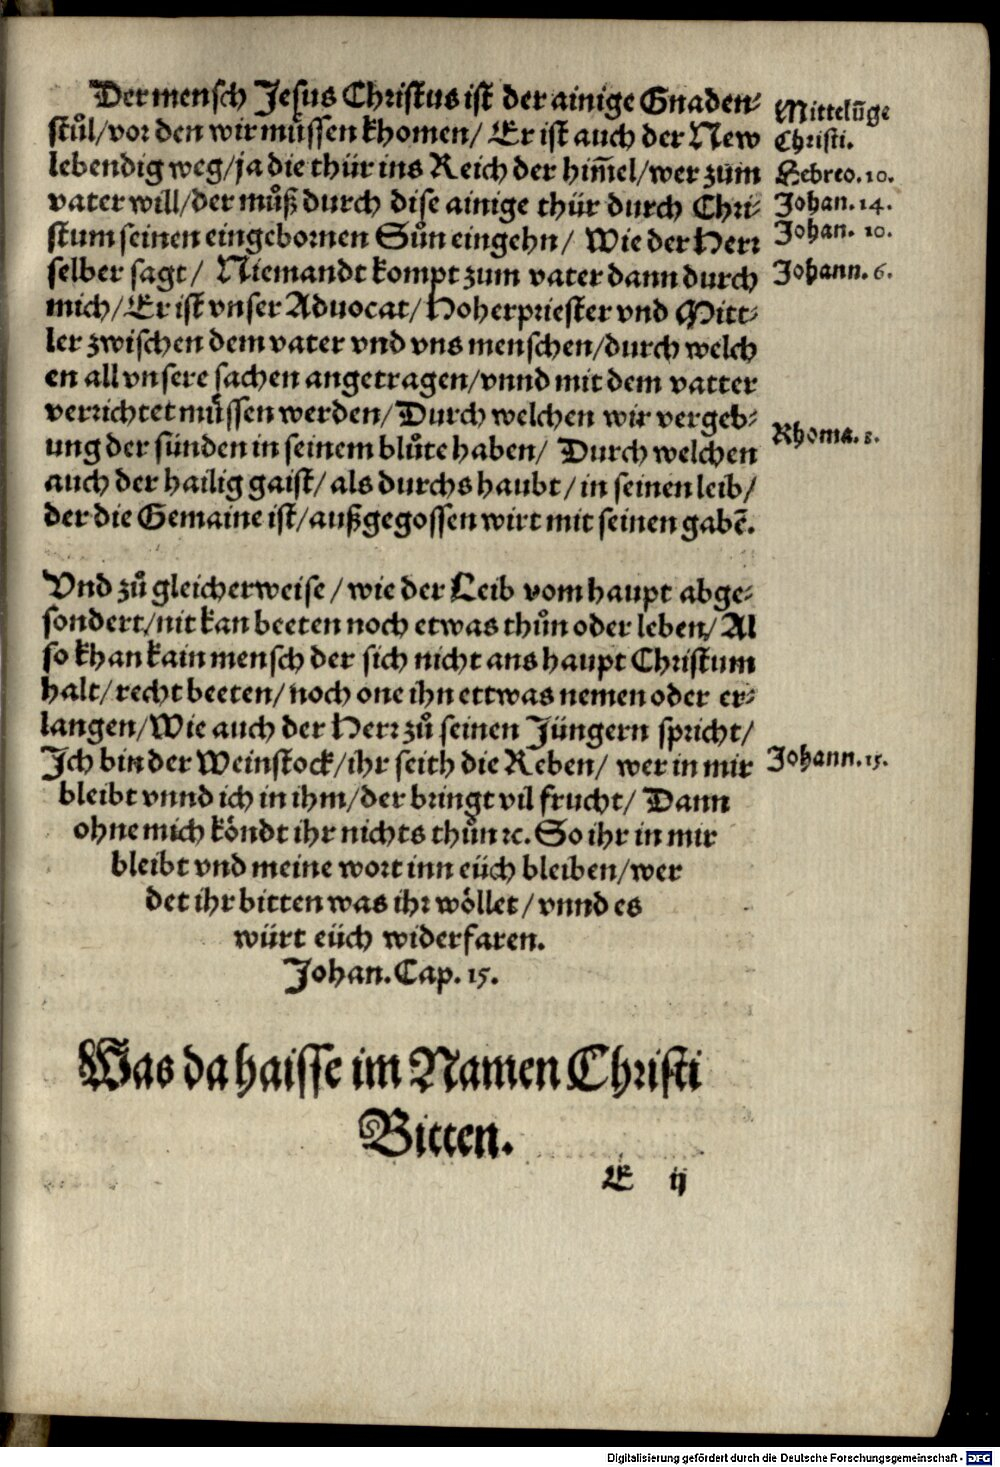 Der mensch Jesus Christus ist der ainige Gnaden⸗
stůl/ vor den wir můssen khomen/ Er ist auch der New
lebendig weg/ ja die thür ins Reich der him̃el/ wer zům
vater will/ der můß durch dise ainige thür durch Chri⸗
stum seinen eingebornen Sůn eingehn/ Wie der Herr
selber sagt/ Niemandt kompt zum vater dann durch
mich/ Er ist vnser Aduocat/ Hoherpriester vnd Mitt⸗
ler zwischen dem vater vnd vns menschen/ durch welch
en all vnsere sachen angetragen/ vnnd mit dem vatter
verrichtet můssen werden/ Durch welchen wir vergeb⸗
ung der sünden in seinem blůte haben/ Durch welchen
auch der hailig gaist/ als durchs haubt/ in seinen leib/
der die Gemaine ist/ außgegossen wirt mit seinen gabẽ.
Mittelũge
Christi.
Hebreo. 10.
Johan. 14.
Johan. 10.
Johann. 6.
Rhoma. 8.
Vnd zů gleicherweise/ wie der Leib vom haupt abge⸗
sondert/ nit kan beeten noch etwas thůn oder leben/ Al
so khan kain mensch der sich nicht ans haupt Christum
halt/ recht beeten/ noch one ihn ettwas nemen oder er⸗
langen/ Wie auch der Herr zů seinen Jüngern spricht/
Ich bin der Weinstock/ ihr seith die Reben/ wer in mir
bleibt vnnd ich in ihm/ der bringt vil frucht/ Dann
ohne mich köndt ihr nichts thůn ꝛc. So ihr in mir
bleibt vnd meine wort inn eüch bleiben/ wer
det ihr bitten was ihr wöllet/ vnnd es
würt eüch widerfaren.
Johan. Cap. 15.
Johann. 15.
Was da haisse im Namen Christi
Bitten.
E ij
Digitalisierung gefördert durch die Deutsche Forschungsgemeinschaft - DFG